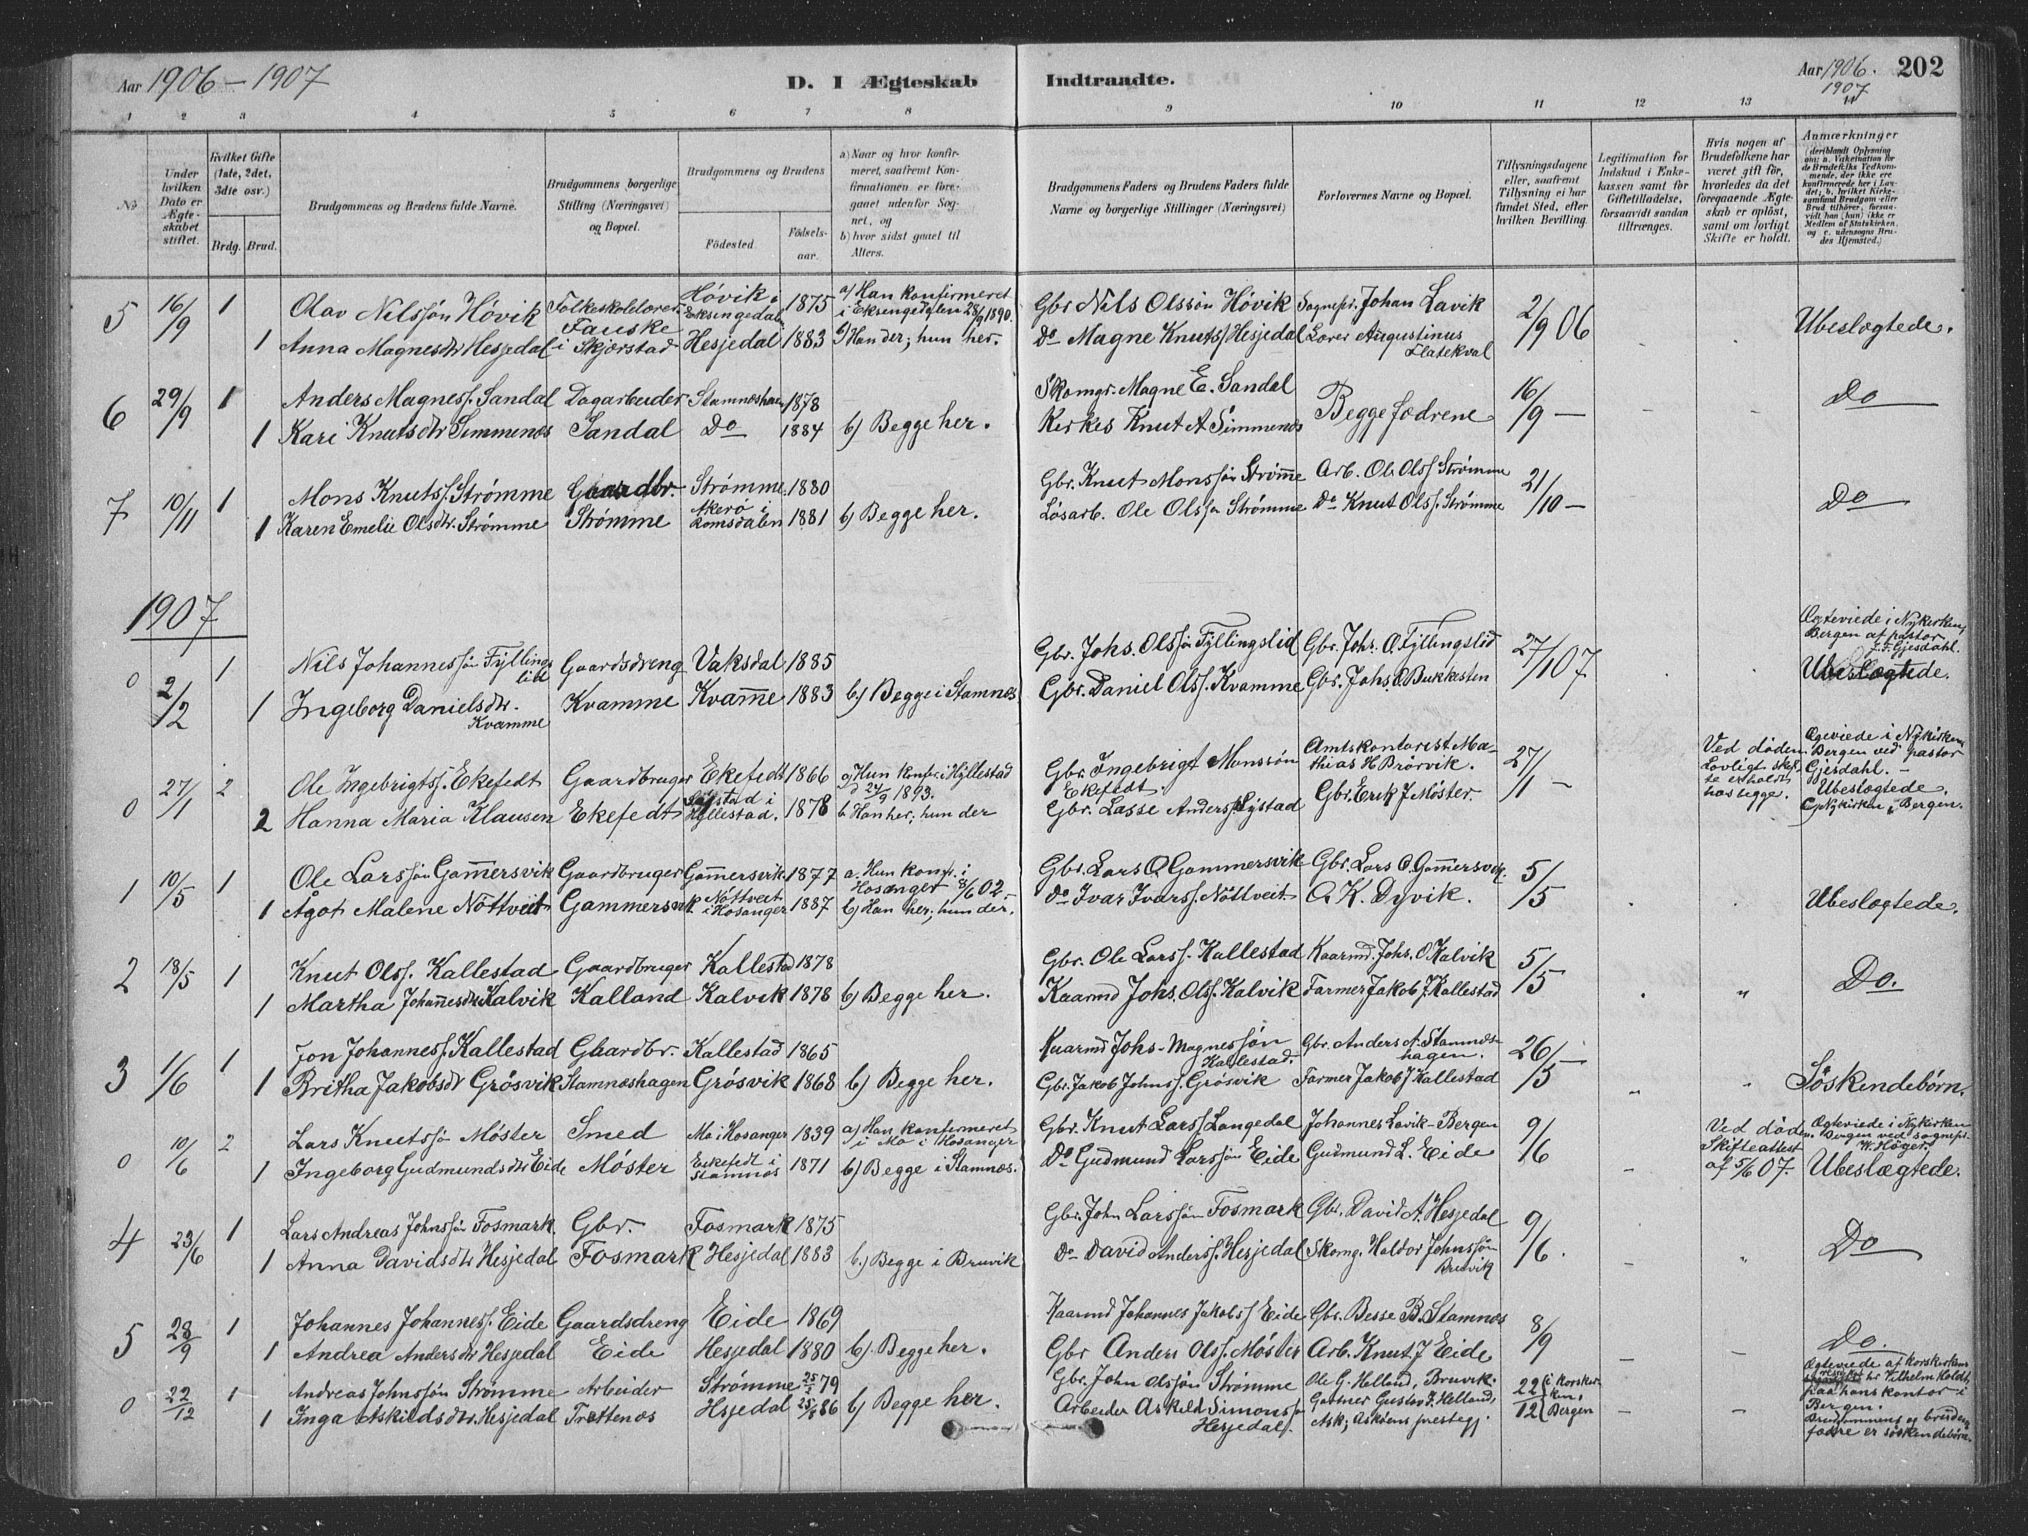 Aar 1906-1907
D. I Ægteskab Indtraadte.
Aar 1906. 202
1907
1 2 3 4 5 6 7 8 9 10 11 12 13 14
№
Under hvilken Dato er Ægteskabet stiftet.
Hvilket Gifte (1ste, 2det, 3dte osv.)
Brdg. Brud.
Brudgommens og Brudens fulde Navne.
Brudgommens borgerlige Stilling (Næringsvei) og Bopæl.
Brudgommens og Brudens
Födested. Födselsaar.
a) Naar og hvor konfirmeret, saafremt Konfirmationen er foregaaet udenfor Sognet, og
b) hvor sidst gaaet til Alters.
Brudgommens Faders og Brudens Faders fulde Navne og borgerlige Stillinger (Næringsvei)
Forlovernes Navne og Bopæl.
Tillysningsdagene eller, saafremt Tillysning ei har fundet Sted, efter hvilken Bevilling.
Legitimation for Indskud i Enkekassen samt for Giftetilladelse, forsaavidt saadan tiltrænges.
Hvis nogen af Brudefolkene har været gift för, hvorledes da det foregaaende Ægteskab er oplöst, samt om lovligt Skifte er holdt.
Anmærkninger
5 16/9 1 Olav Nilssön Hövik Folkeskolelærer Hövik Eksingedalen 1875 a) Han konfirmeret i Eksingedalen 28/9 1890. Gbr Nils Olssön Hövik Sognepr. Johan Lavik 2/9 06 Ubeslægtede.
1 Anna Magnesdtr Hesjedal Fauske i Skjerstad Hesjedal 1883 b) Han der; hun her. Do Magne Knuts. Hesjedal Lærer Augustinus Flatekval
6 29/9 1 Anders Magness. Sandal Dagarbeider Stamneshagen 1878 Skomgr. Magne E. Sandal Begge fædrene 16/9 — Do
1 Kari Knutsdtr Simmenes Sandal Do 1884 b) Begge her. Knut A Simmenes
7 10/11 1 Mons Knutss. Strømme Gaardbr. Strømme 1880 Gbr. Knut Monssön Strømme Arb. Ole Olss Strømme 21/10 — Do
1 Karen Emelie Olsdtr. Strømme Strømme Akerø i Romsdalen 1881 b) Begge her. Løsarb. Ole Olssen Strømme Do Knut Olss. Strømme
1907
0 2/2 1 Nils Johannessön Fyllingslid Gaardsdreng Vaksdal 1885 Gbr. Johs. Olssön Fyllingslid Gbr. Johs. O Fyllingslid 27/1 07 Ægteviede i Nykirken, Bergen af pastor J.F. Gjesdahl.
1 Ingeborg Danielsdtr. Kvamme Kvamme Kvamme 1883 b) Begge i Stamnes Gbr. Daniel Olss. Kvamme Gbr. Johs O Bukkesten Ubeslægtede.
0 27/1 2 Ole Ingebrigtss. Ekefedt Gaardbruger Ekefedt 1866 a) Hun konf. i Hyllestad 24/9 1893. Gbr. Ingebrigt Monssön Ekefedt. Amtskontorist Mathias H Brørvik. 27/1 — Ved döden. Lovligt skifte er holdt hos begge. Ægeviede i Nykirken, Bergen ved pastor Gjesdahl. — Ubeslægtede.
2 Hanna Maria Klausen Ekefedt Systad i Hyllestad. 1878 b Han her; hun der Gbr. Lasse Anders. Systad Gbr. Erik J Möster. Nykirken i Bergen.
1 10/5 1 Ole Larssön Gammersvik Gaardbruger Gammersvik 1877 a. Hun konf. i Hosanger 8/6 02. Gbr. Lars O. Gammersvik Gbr. Lars O. Gammersvik. 5/5 Ubeslægtede.
1 Agot Malene Nöttveit Gammersvik Nöttveit i Hosanger 1887 b) Han her; hun der. Do Ivar Ivarss. Nöttveit O. K. Dyvik.
2 18/5 1 Knut Olss. Kallestad Gaardbruger Kallestad 1878 Gbr. Ole Larss. Kallestad Kaarmd. Johs. O Kalvik 5/5 " Do.
1 Martha Johannesdtr Kalvik Kalland Kalvik 1878 b) Begge her. Kaarmd Johs. Olss. Kalvik Farmer Jakob J. Kallestad
3 1/6 1 Jon Johanness. Kallestad Gaardbr. Kallestad 1865 Kaarmd Johs. Magnessön Kallestad. Gbr. Anders A. Stamneshagen. 26/5 — " Söskendebörn.
1 Britha Jakobsdtr Grösvik Stamneshagen Grösvik 1868 b) Begge her. Gbr. Jakob Johnss. Grösvik Farmer Jakob J Kallestad
0 10/6 2 Lars Knutssön Möster Smed Mo i Hosanger 1839 a) Han konfirmeret i Mo i Hosanger Gbr. Knut Larss. Langedal Johannes Lavik - Bergen 9/6 Ved döden. Skifteattest af 5/6 07. Ægteviede i Nykirken Bergen ved sognepr. W. Höyer.
1 Ingeborg Gudmundsdtr Eide Möster Ekefedt i Stamnes 1871 b) Begge i Stamnes. Do Gudmund Larssön Eide Gudmund L. Eide Ubeslægtede.
4 23/6 1 Lars Andreas Johnssön Fosmark Gbr. Fosmark 1875 Gbr. John Larssön Fosmark Gbr. David A. Hesjedal 9/6. " Do
1 Anna Davidsdtr Hesjedal Fosmark Hesjedal 1883 b.) Begge i Bruvik Do David Anderss. Hesjedal Skomg. Haldor Johnssön Bruvik
5 28/9 1 Johannes Johanness. Eide Gaardsdreng Eide 1869 Kaarmd Johannes Jakobss Eide Gbr. Besse B. Stamnes 8/9 Do.
1 Andrea Andersdtr Hesjedal Eide Hesjedal 1880 b) Begge her. Gbr Anders Olss. Möster Arb. Knut J Eide
0 22/12 1 Andreas Johnssön Strömme Arbeider Strömme 79 b) Begge her. Gbr. John Olssön Strömme Ole G. Helland, Bruvik. 22/12 i Korskirken, Bergen Ægteviede af Korskirkens Vilhelm Koldt paa hans kontor i Bergen.
1 Inga Askildsdtr Hesjedal Trettenes Hsjedal 86 Arbeider Askild Simonss. Hesjedal. Gartner Gustav J. Helland, Ask, Askøens prestegj. Brudgommens og brudens fædre er söskendebörn.